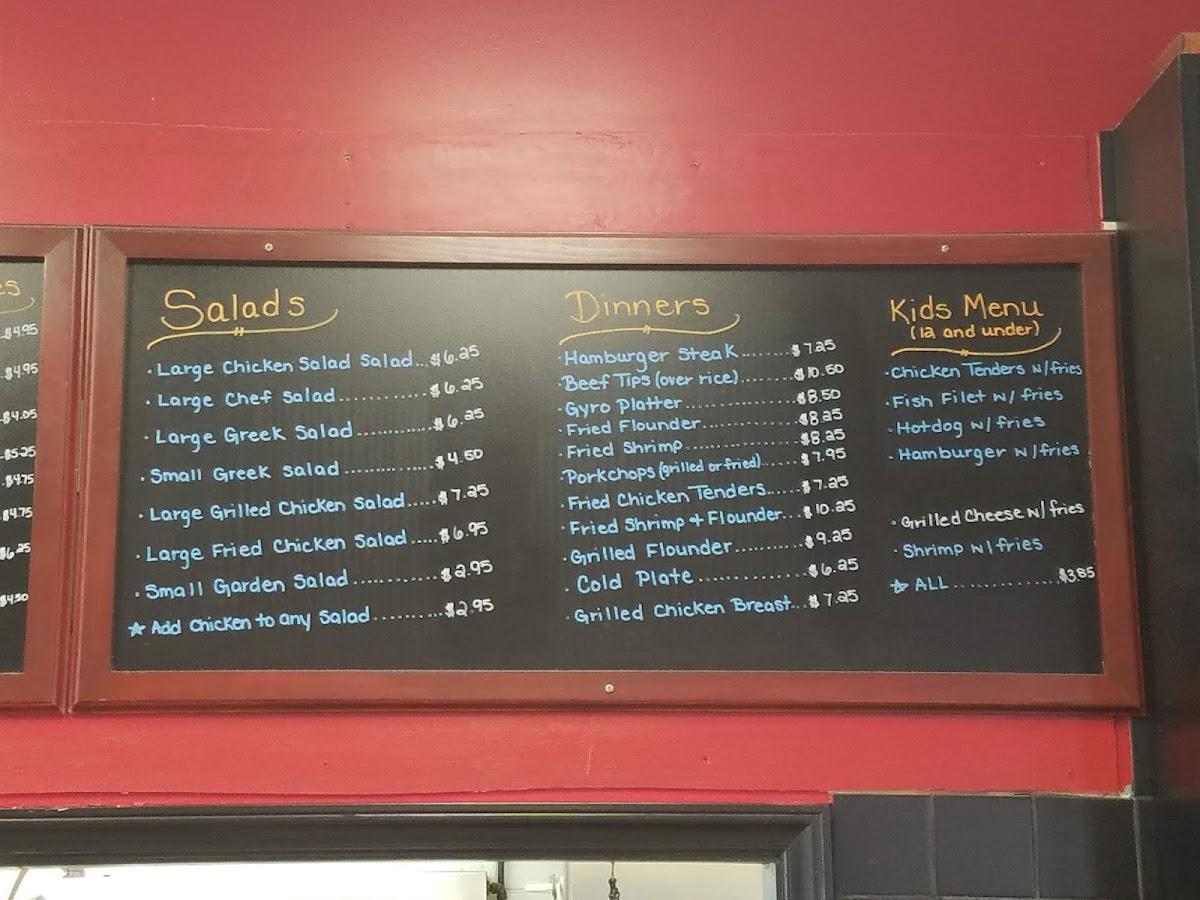 es
$4.95
$4.95
$4.05
$5.25
$4.75
$4.75
$6.25
$4.50
Salads
· Large Chicken Salad Salad...$6.25
· Large Chef Salad............$6.25
· Large Greek Salad...........$6.25
· Small Greek Salad.............$4.50
· Large Grilled Chicken Salad.....$7.25
· Large Fried Chicken Salad.....$6.95
· Small Garden Salad.............$2.95
☆ Add Chicken to any Salad..........$2.95
Dinners
· Hamburger Steak.......$7.25
· Beef Tips (over rice)........$10.50
· Gyro Platter................$8.50
· Fried Flounder..............$8.25
· Fried Shrimp................$8.25
· Porkchops (grilled or fried).....$7.95
· Fried Chicken Tenders......$7.25
· Fried Shrimp + Flounder...$10.25
· Grilled Flounder..........$9.25
· Cold Plate................$6.25
· Grilled Chicken Breast...$7.25
Kids Menu
(12 and under)
· Chicken Tenders w/fries
· Fish Filet w/ fries
· Hotdog w/ fries
· Hamburger w/fries
· Grilled Cheese w/ fries
· Shrimp w/ fries
☆ ALL..............$3.85